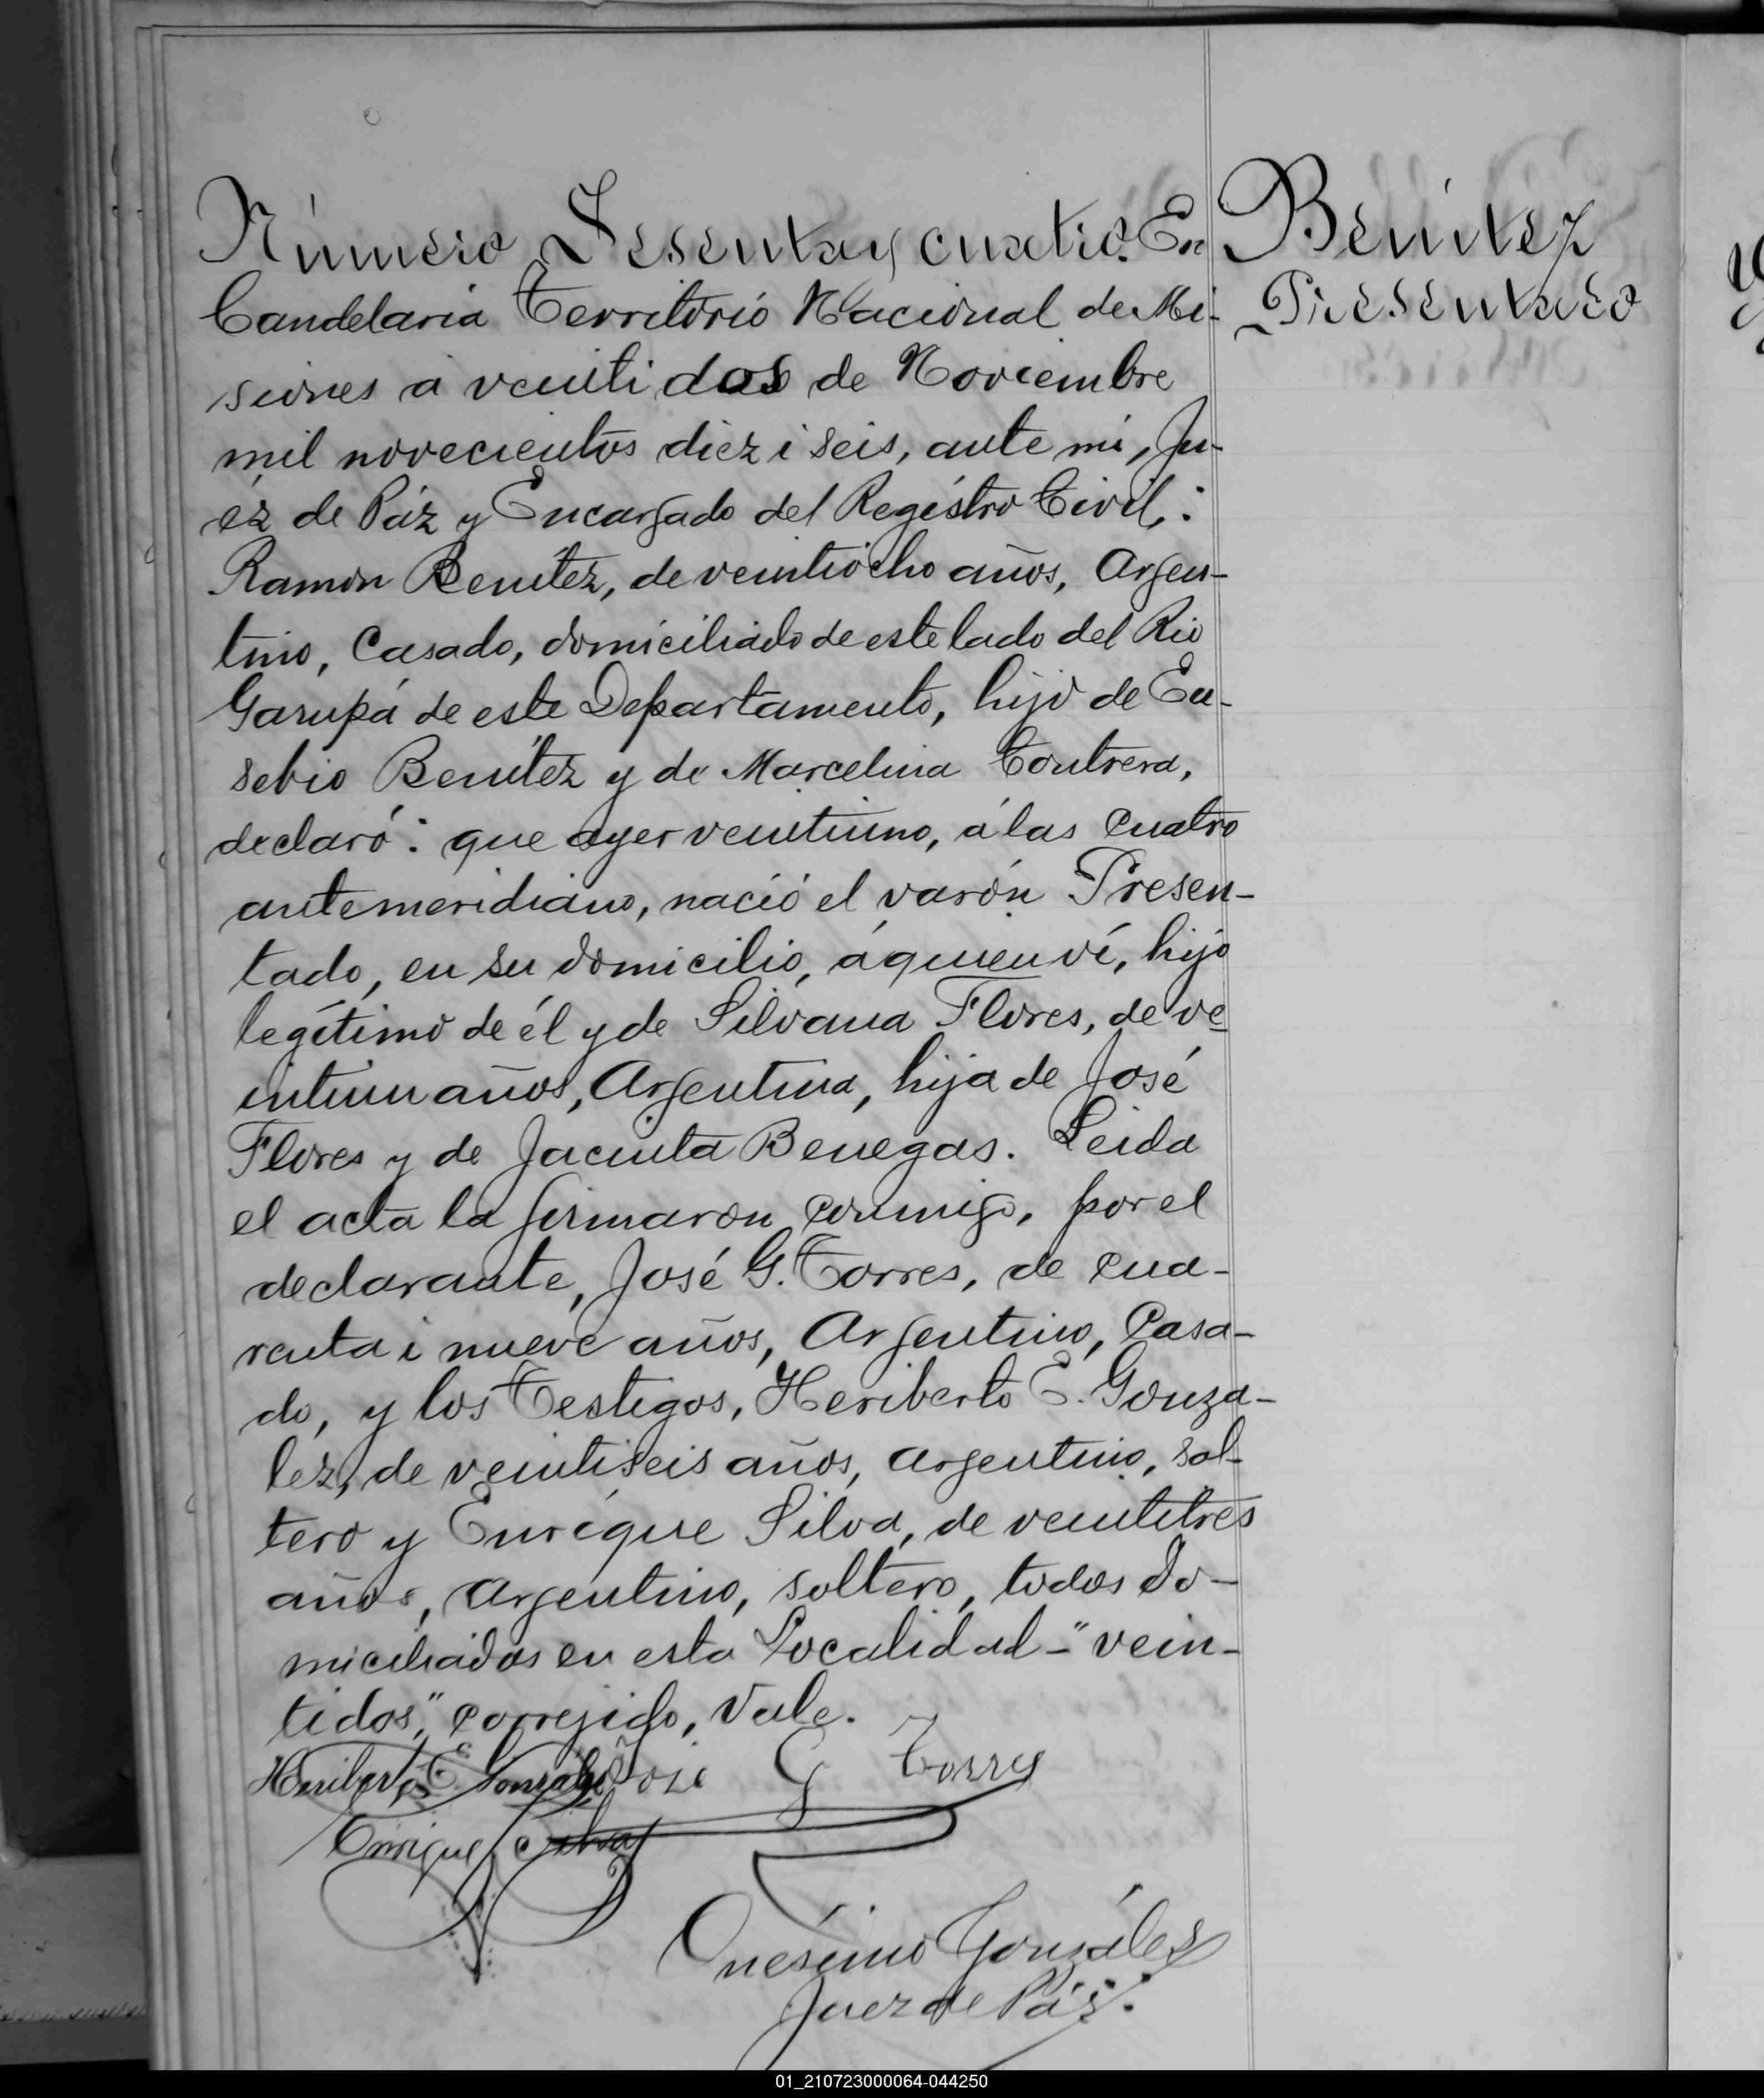 Número Sesenta y cuatro. En
Candelaria Territorio Nacional de Mi-
siones a veinti dos de Noviembre
mil novecientos diez i seis, ante mi, Ju-
éz de Páz y Encargado del Registro Civil,:
Ramón Benítez, de veintiocho años, Argen-
tino, Casado, domiciliado de este lado del Rio
Garupá de este Departamento, hijo de Eu-
sebio Benítez y de Marcelina Contrera,
declaró: que ayer veintiuno, á las cuatro
antemeridiano, nació el varón Presen-
tado, en su domicilio, á quien ví, hijo
legítimo de él y de Silvana Flores, de ve
intiun años, Argentina, hija de José
Flores y de Jacinta Benegas. Leida
el acta la firmaron conmigo, por el
declarante, José G. Torres, de cua-
renta i nueve años, Argentino, Casa-
do, y los Testigos, Heriberto E. Gonza-
lez, de veintiseis años, argentino, sol-
tero y Enrique Silva, de veintitres
años, argentino, soltero, todos do-
miciliados en esta Localidad-"vein-
tidos", correjido, Vale.
Heriberto E. Gonzalez José G Torres
Enrique Silva
Onésimo Gonzáles
Juez de Páz.
Benítez
Presentado
01_210723000064-044250